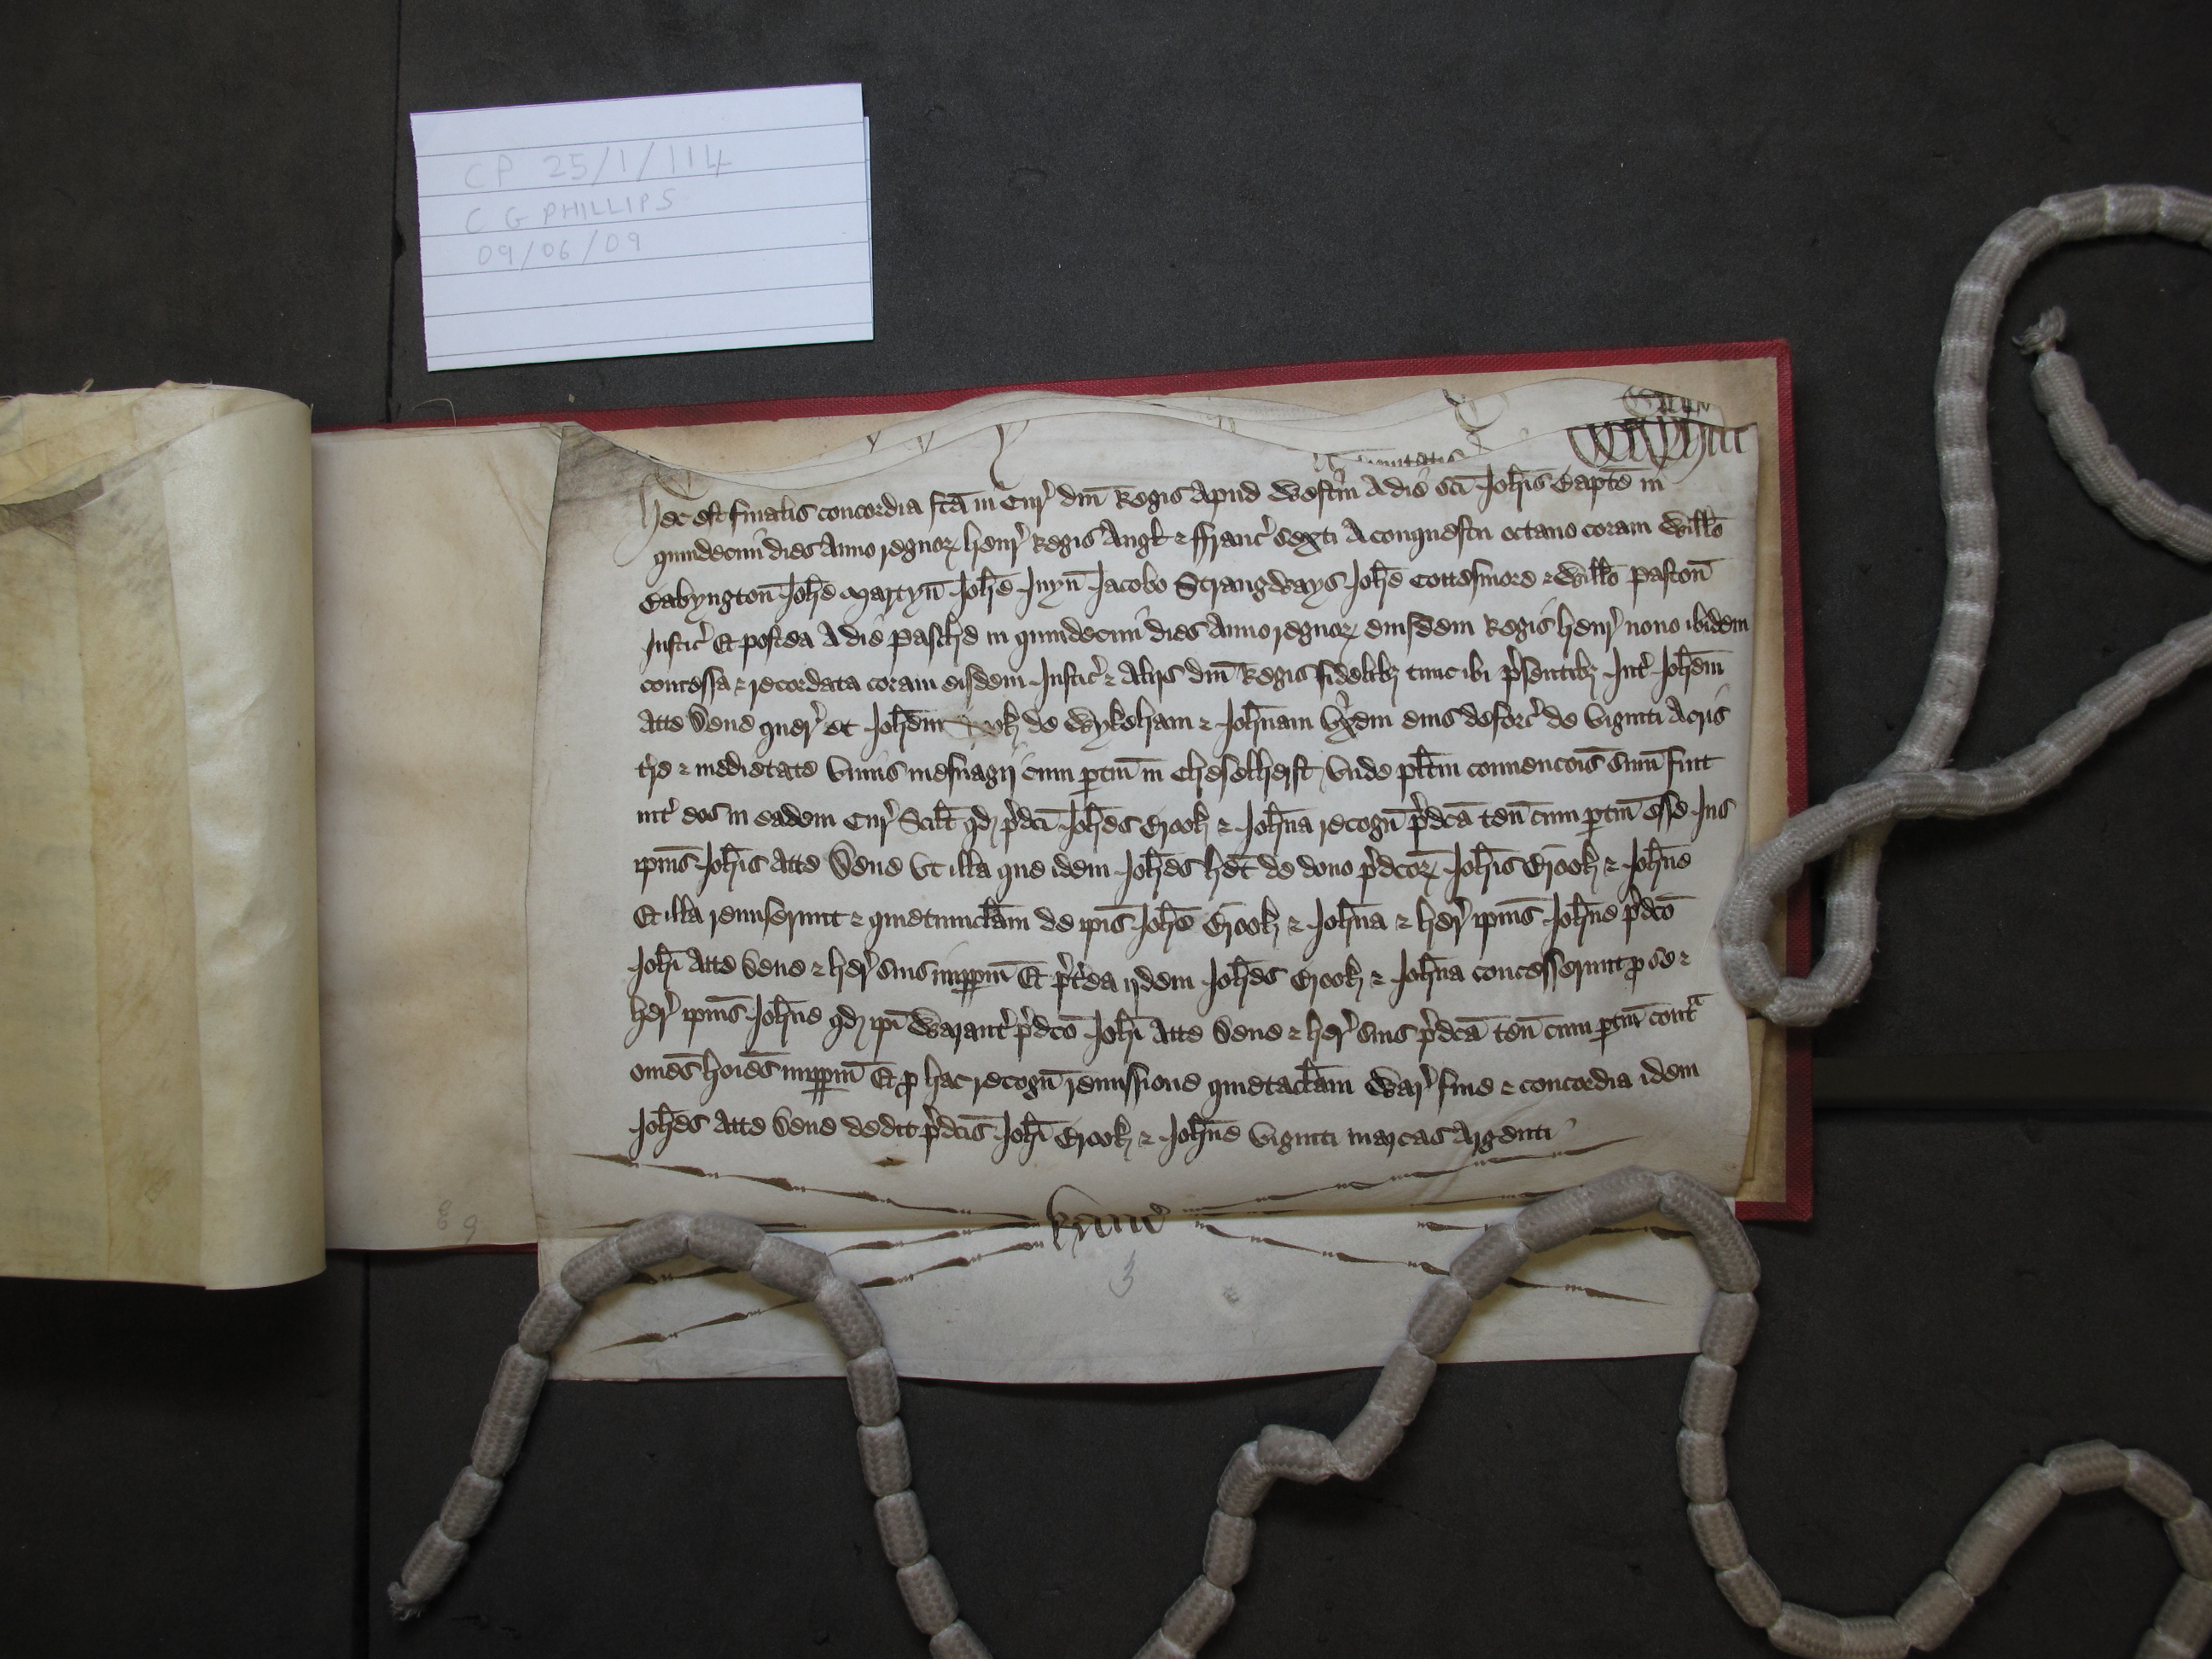 CP 25/1/114
C G PHILLIPS
09/06/09
Hec est finalis concordia fc̄a in Cur̉ dn̄i Regis Apud Westm̄ A die sc̄i Joh̄is Bapt̄e in
quindecim dies Anno regnoꝝ Henr̉ Regis Angł ⁊ ffranc̉ sexti A conquestu octavo coram Will̄o
Babyngton̄ Joh̄e Martyn̄ Joh̄e Juyn̄ Jacobo Strangways Joh̄e Cottesmore ⁊ Will̄o Paston̄
Justic̉ Et postea A die Pasche in quindecim dies Anno regnoꝝ eiusdem Regis Henr̉ nono ibidem
concessa ⁊ recordata coram eisdem Justic̉ ⁊ Alijs dn̄i Regis fidelibȝ tunc ibi p̉sentibȝ Int̉ Joh̄em
Atte Dene quer̉ et Joh̄em de Wykeham ⁊ Joh̄nam Vx̉em eius deforc̉ de viginti Acris
t̉re ⁊ medietate vnius mesuagij cum ptin̄ in Cheselherst Vnde pl̄itm convencōis sum̄ fuit
int̉ eos in eadem Cur̉ Scil̄t qđ p̉dc̄i Joh̄es Crook ⁊ Joh̄na recogn̄ p̉dc̄a ten̄ cum ptin̄ esse Jus
ipius̄ Joh̄is Atte Dene Vt illa que idem Joh̄es h̄et de dono p̉dc̄oꝝ Joh̄is Crook ⁊ Joh̄ne
Et illa remiserunt ⁊ quietumclam̄ de ip̄is Joh̄e Crook ⁊ Joh̄na ⁊ her̉ ipius̄ Joh̄ne p̉dc̄o
Joh̄i Atte Dene ⁊ her̉ suis imꝑpm̄ Et p̉t̉ea ijdem Joh̄es Crook ⁊ Joh̄na concesserunt ꝓ se ⁊
her̉ ipius̄ Joh̄ne qđ ip̄i Warant̉ p̉dc̄o Joh̄i Atte Dene ⁊ her̉ suis p̉dc̄a ten̄ cum ptin̄ contᵃ
om̄es hoīes imꝑpm̄ Et ꝓ hac recogn̄ remissione quietaclam̄ War̉ fine ⁊ concordia idem
Joh̄es Atte Dene dedit p̉dc̄is Joh̄i Crook ⁊ Joh̄ne viginti marcas Argenti
Kanc̉
3